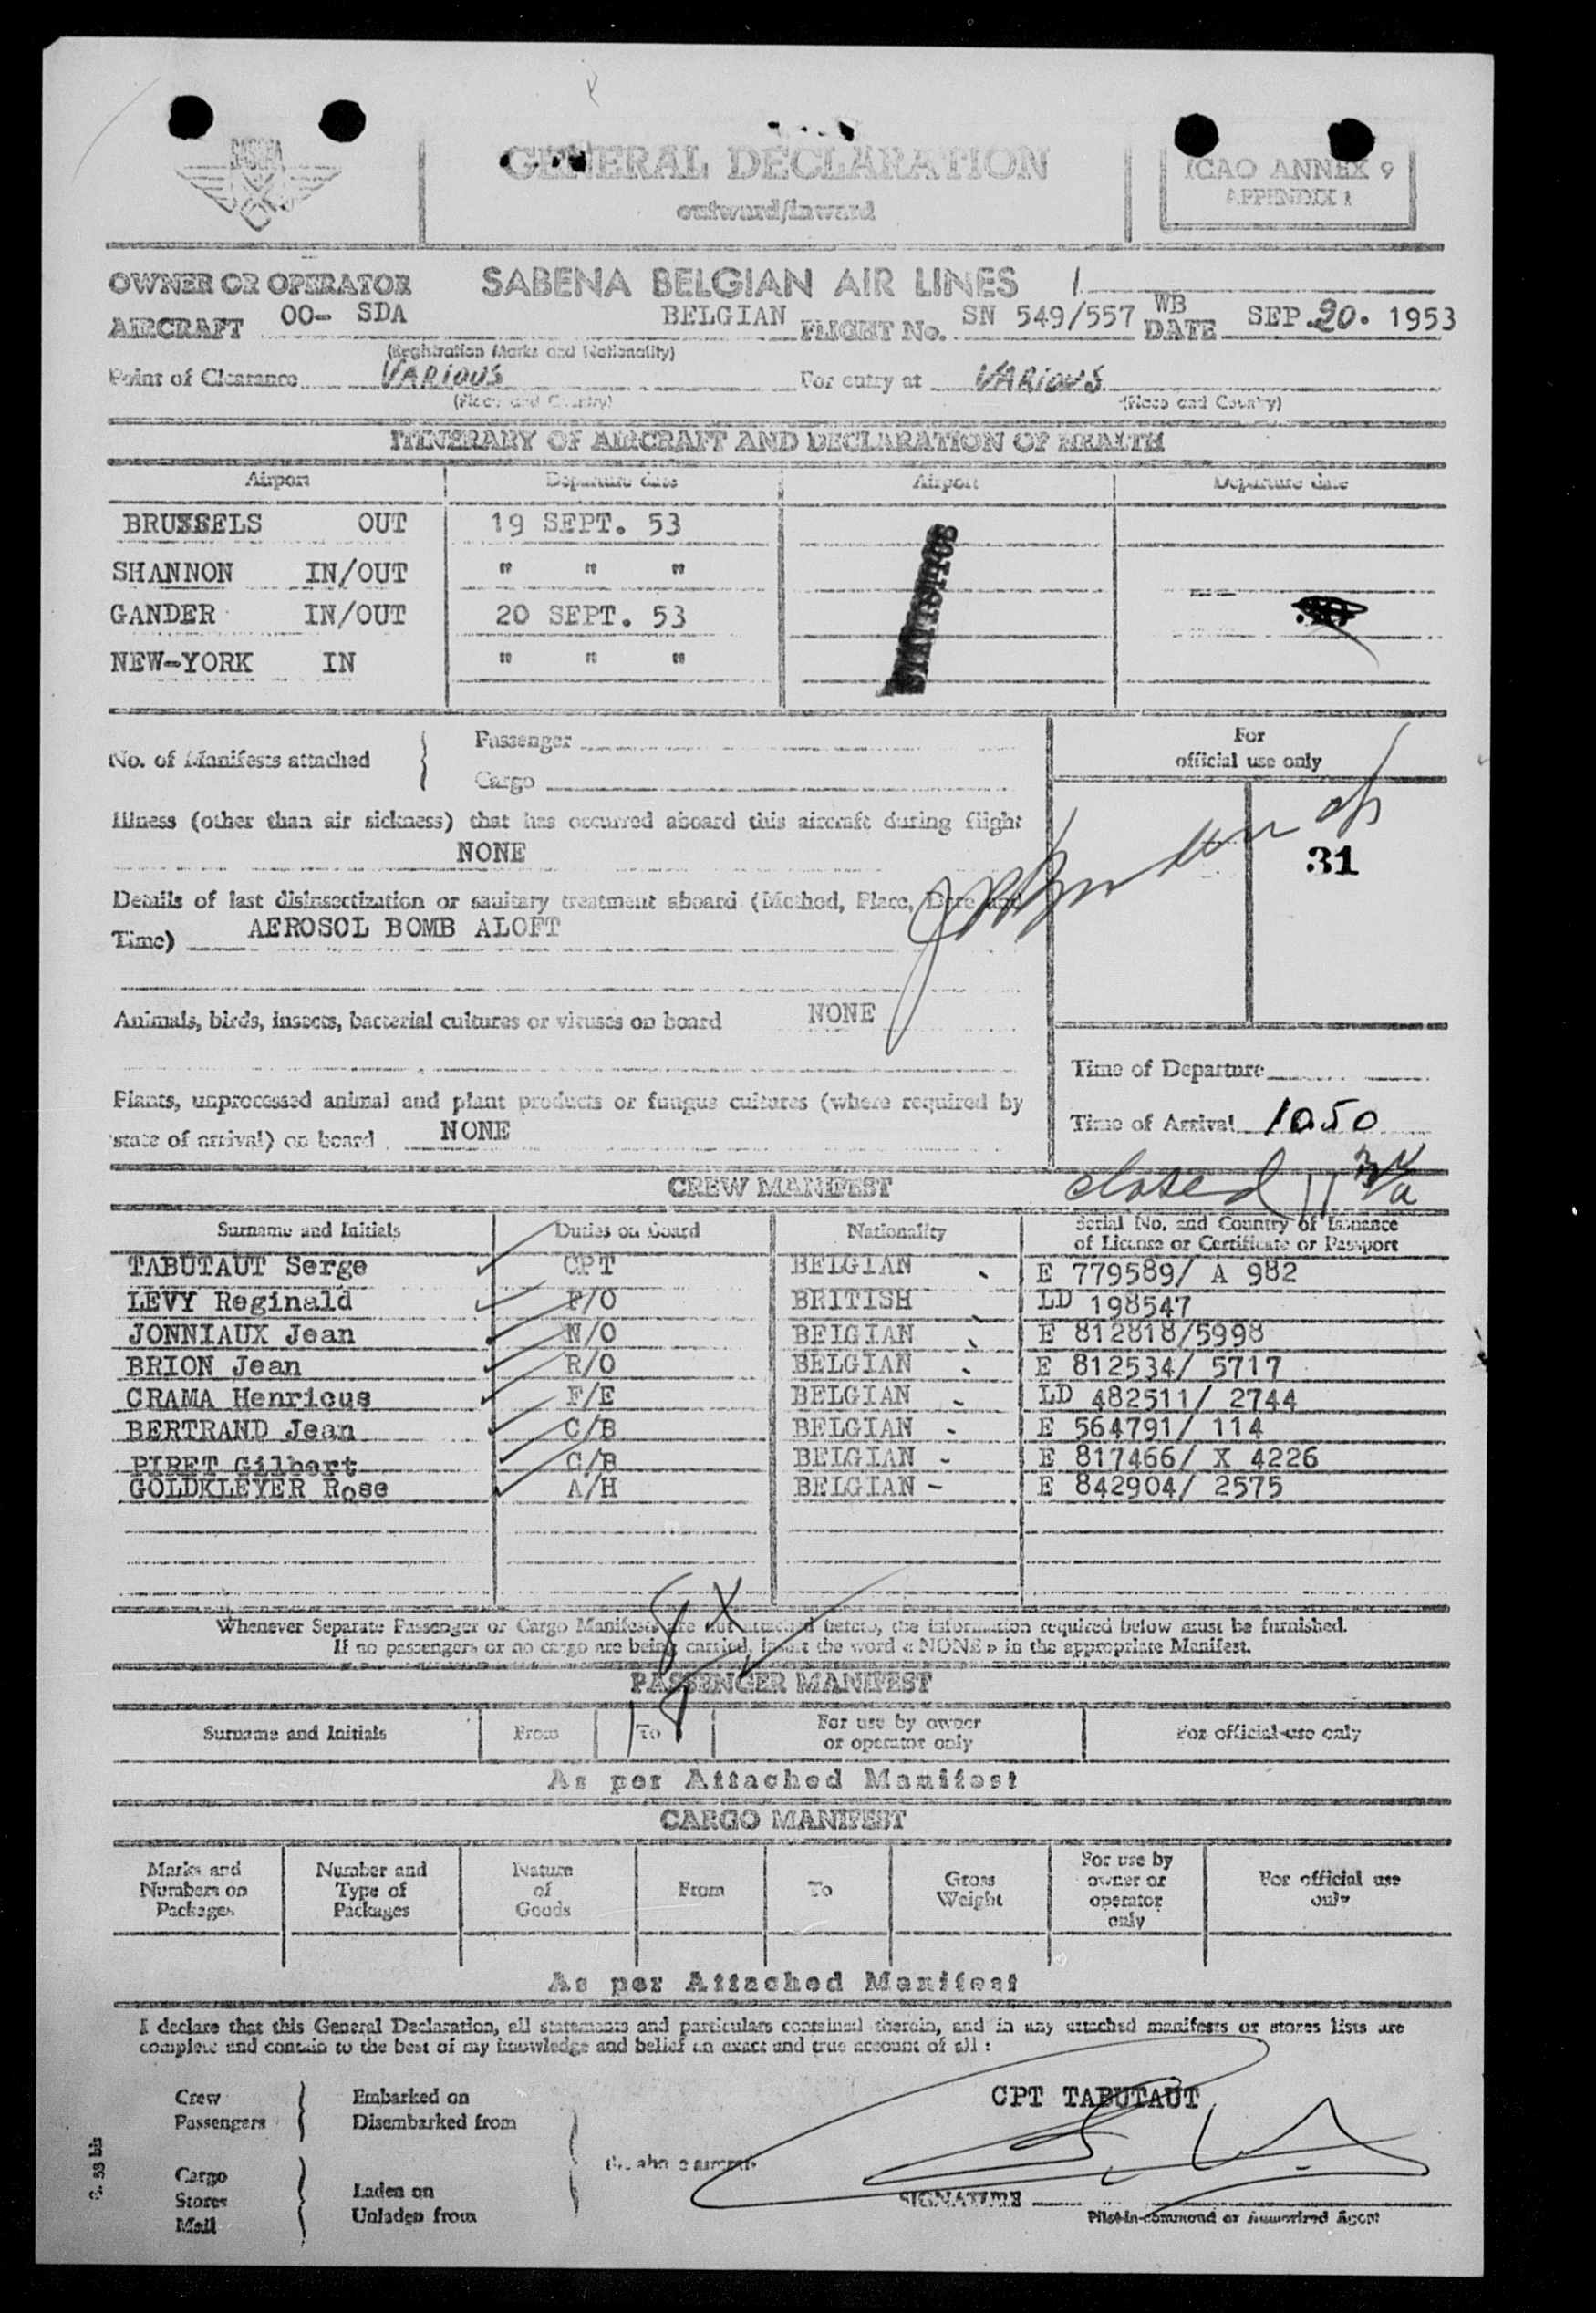 SABENA
GENERAL DECLARATION
outward/inward
ICAO ANNEX 9
APPENDIX 1
OWNER OR OPERATOR SABENA BELGIAN AIR LINES
AIRCRAFT OO- SDA BELGIAN FLIGHT No. SN 549/557 WB DATE SEP. 20. 1953
(Registration Marks and Nationality)
Point of Clearance VARIOUS For entry at VARIOUS
(Place and Country) (Place and Country)
ITINERARY OF AIRCRAFT AND DECLARATION OF HEALTH
Airport Departure date Airport Departure date
BRUSSELS OUT 19 SEPT. 53
SHANNON IN/OUT " " "
GANDER IN/OUT 20 SEPT. 53
NEW-YORK IN " " "
STATISTICS
No. of Manifests attached
Passenger
Cargo
For
official use only
31
Illness (other than air sickness) that has occurred aboard this aircraft during flight
NONE
Details of last disinsectization or sanitary treatment aboard (Method, Place, Date and
Time) AEROSOL BOMB ALOFT
Animals, birds, insects, bacterial cultures or viruses on board NONE
Plants, unprocessed animal and plant products or fungus cultures (where required by
state of arrival) on board NONE
Time of Departure
Time of Arrival 1050
closed 11
CREW MANIFEST
Surname and Initials Duties on board Nationality Serial No. and Country of Issuance
of License or Certificate or Passport
TABUTAUT Serge CPT BELGIAN E 779589/ A 982
LEVY Reginald F/O BRITISH LD 198547
JONNIAUX Jean N/O BELGIAN E 812818/5998
BRION Jean R/O BELGIAN E 812534/ 5717
CRAMA Henricus F/E BELGIAN LD 482511/ 2744
BERTRAND Jean C/B BELGIAN E 564791/ 114
PIRET Gilbert C/B BELGIAN E 817466/ X 4226
GOLDKLEYER Rose A/H BELGIAN - E 842904/ 2575
8 X
Whenever Separate Passenger or Cargo Manifests are not attached hereto, the information required below must be furnished.
If no passengers or no cargo are being carried, insert the word « NONE » in the appropriate Manifest.
PASSENGER MANIFEST
Surname and Initials From To For use by owner
or operator only For official use only
As per Attached Manifest
CARGO MANIFEST
Marks and
Numbers on
Packages
Number and
Type of
Packages
Nature
of
Goods
From
To
Gross
Weight
For use by
owner or
operator
only
For official use
only
As per Attached Manifest
I declare that this General Declaration, all statements and particulars contained therein, and in any attached manifests or stores lists are
complete and contain to the best of my knowledge and belief an exact and true account of all :
Crew
Passengers
Embarked on
Disembarked from
Cargo
Stores
Mail
Laden on
Unladen from
the above aircraft
CPT TABUTAUT
SIGNATURE
Pilot-in-command or Authorized Agent